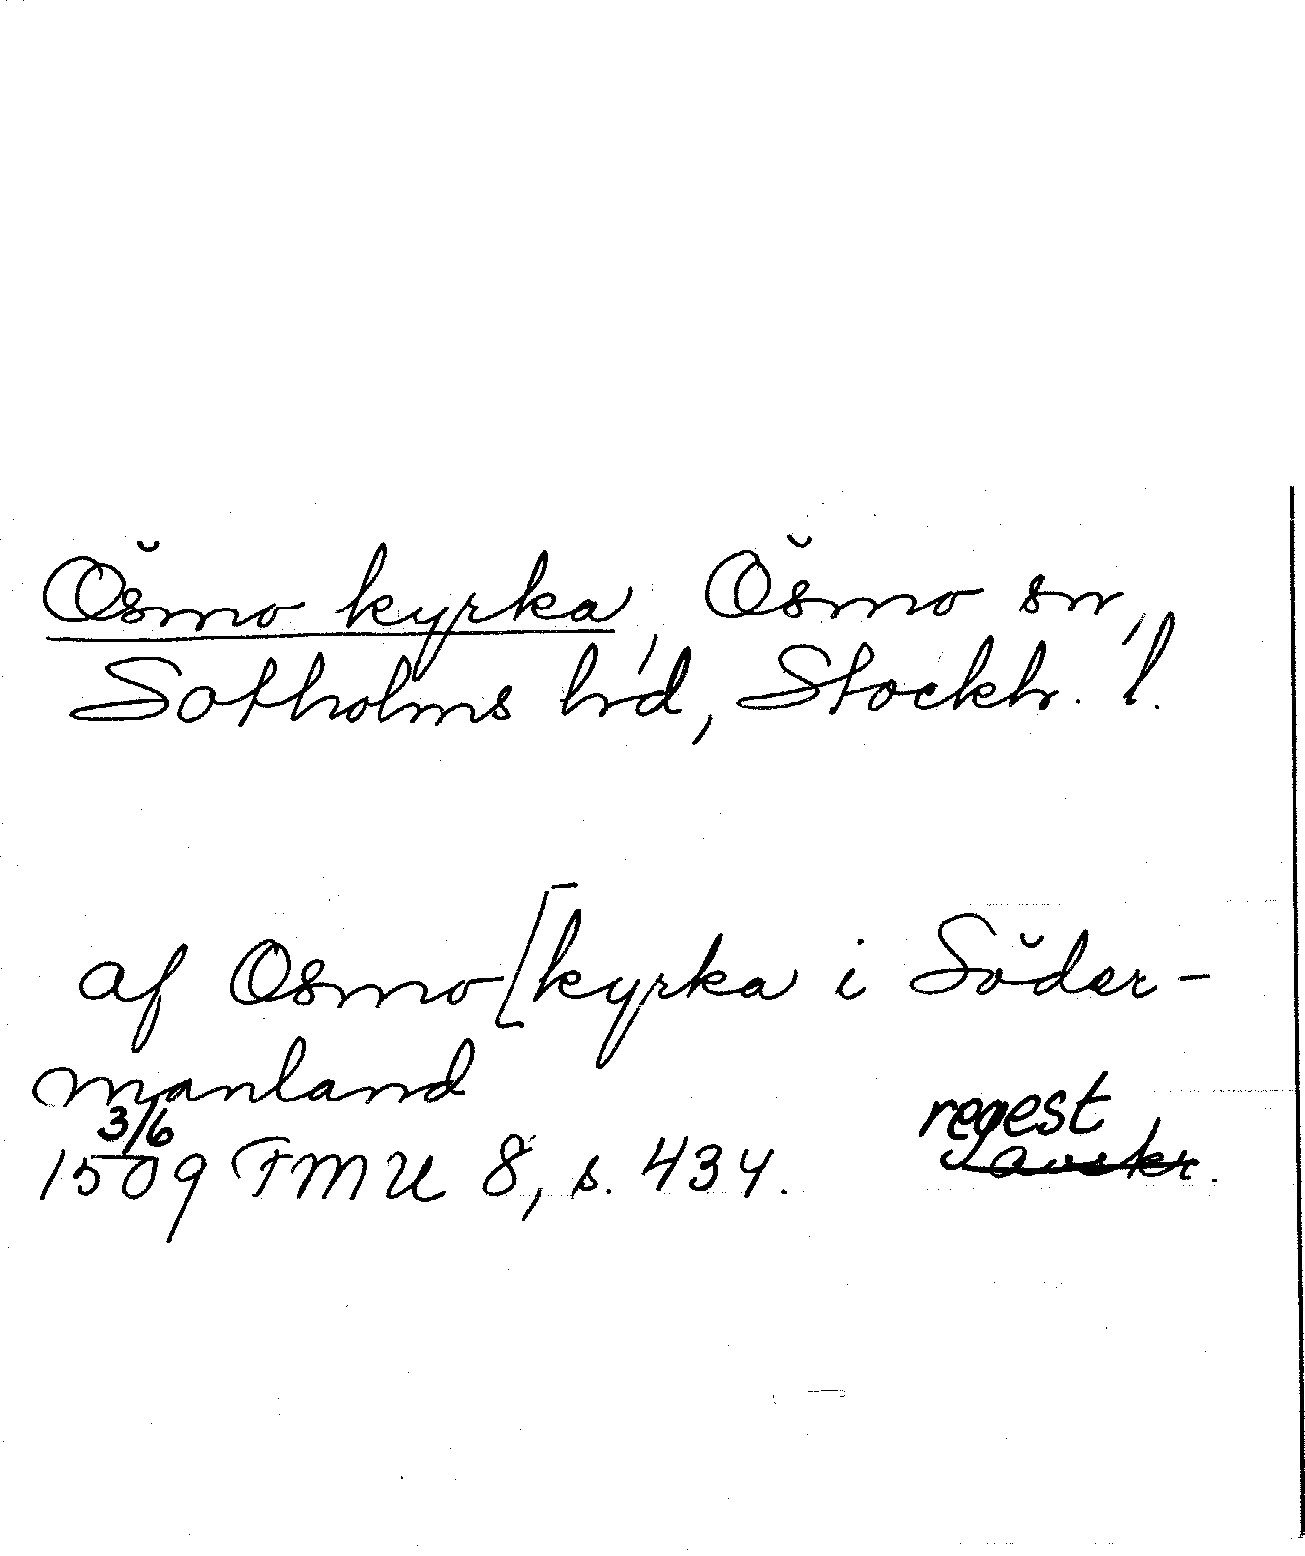 Ösmo kyrka, Ösmo sn,
Sotholms hd, Stockh. l.
af Osmo [kyrka i Söder-
manland
3/6 regest
1509 FMU 8, s. 434. avskr.